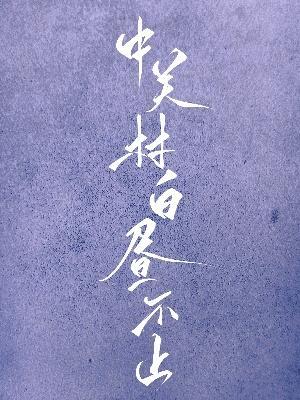 中关村白昼不止